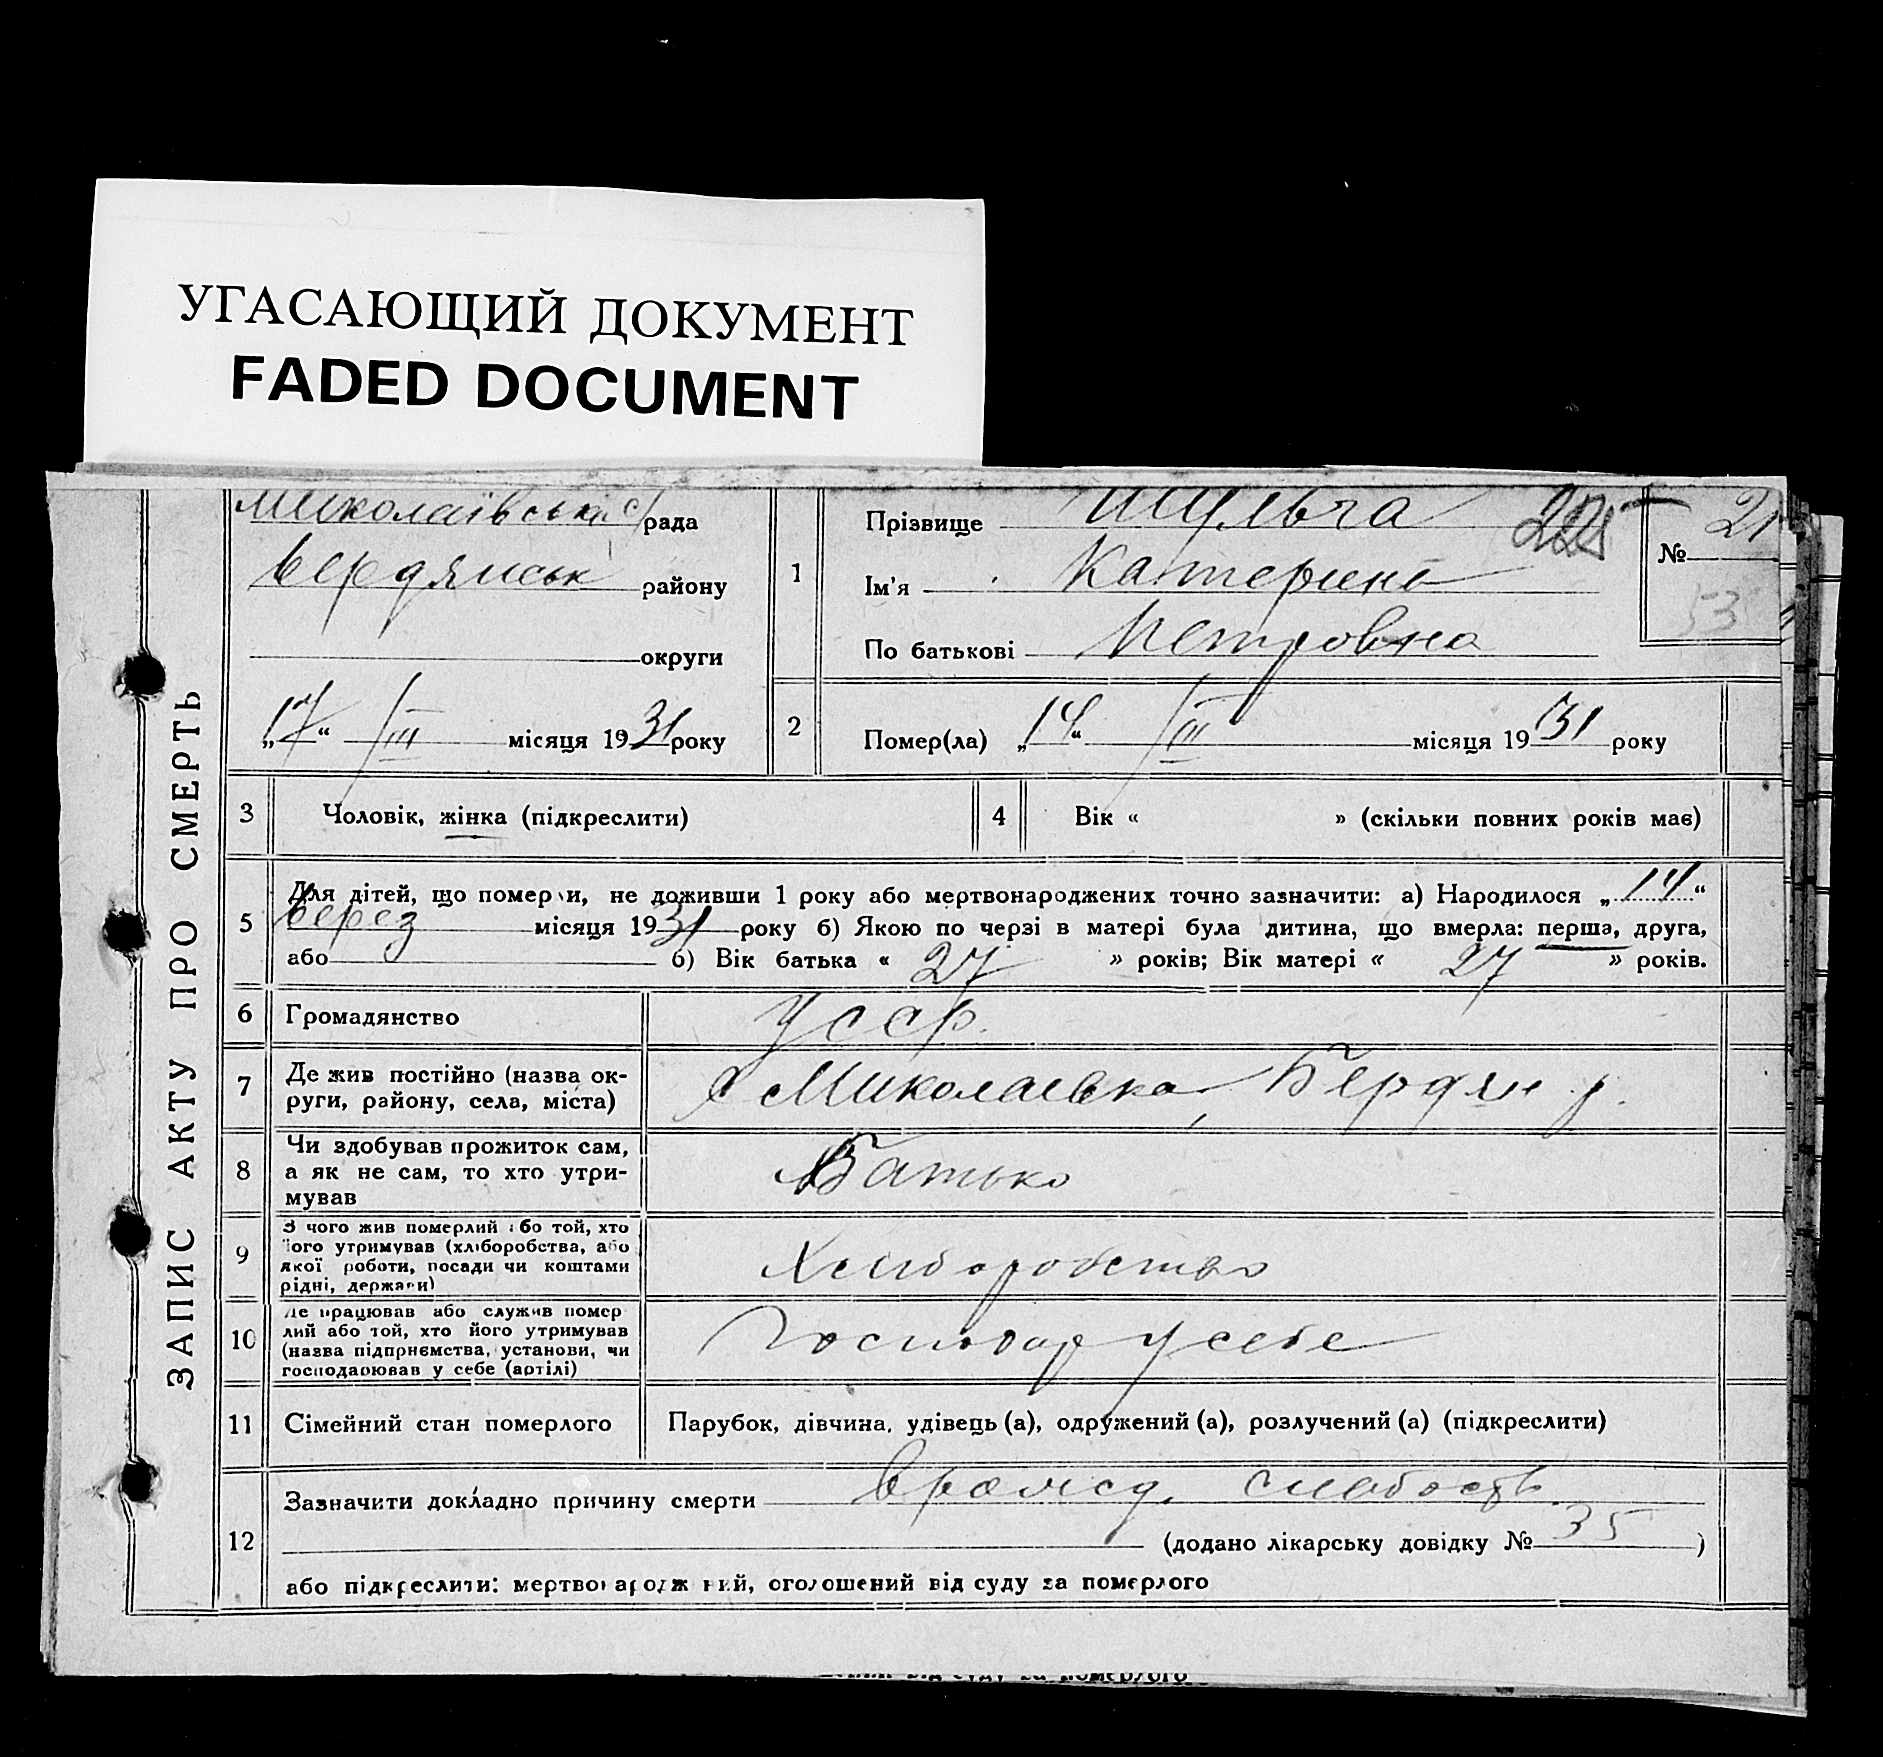 УГАСАЮЩИЙ ДОКУМЕНТ
FADED DOCUMENT
ЗАПИС АКТУ ПРО СМЕРТЬ
Миколаївська с/рада
Бердянськ району
округи
„17“ /III місяця 1931 року
1
Прізвище Шульга
Ім'я Катерина
По батькові Петровна
225
№ 21
53
2
Помер(ла) „14“ /III місяця 1931 року
3 Чоловік, жінка (підкреслити)
4 Вік « » (скільки повних років має)
5
Для дітей, що померли, не доживши 1 року або мертвонароджених точно зазначити: а) Народилося „14“
берез місяця 1931 року б) Якою по черзі в матері була дитина, що вмерла: перша, друга,
або б) Вік батька « 27 » років; Вік матері « 27 » років.
6 Громадянство УССР.
7 Де жив постійно (назва ок-
руги, району, села, міста)
с Миколаевка, Бердян р.
8
Чи здобував прожиток сам,
а як не сам, то хто утри-
мував
Батько
9
З чого жив померлий або той, хто
його утримував (хліборобства, або
якої роботи, посади чи коштами
рідні, держави)
Хлиборобство
10
Де працював або служив помер
лий або той, хто його утримував
(назва підприємства, установи, чи
господарював у себе (артілі)
Господар у себе
11 Сімейний стан померлого
Парубок, дівчина, удівець (а), одружений (а), розлучений (а) (підкреслити)
12
Зазначити докладно причину смерти врожд. слабость
(додано лікарську довідку № 35 )
або підкреслити: мертвонароджений, оголошений від суду за померлого
від суду за померлого